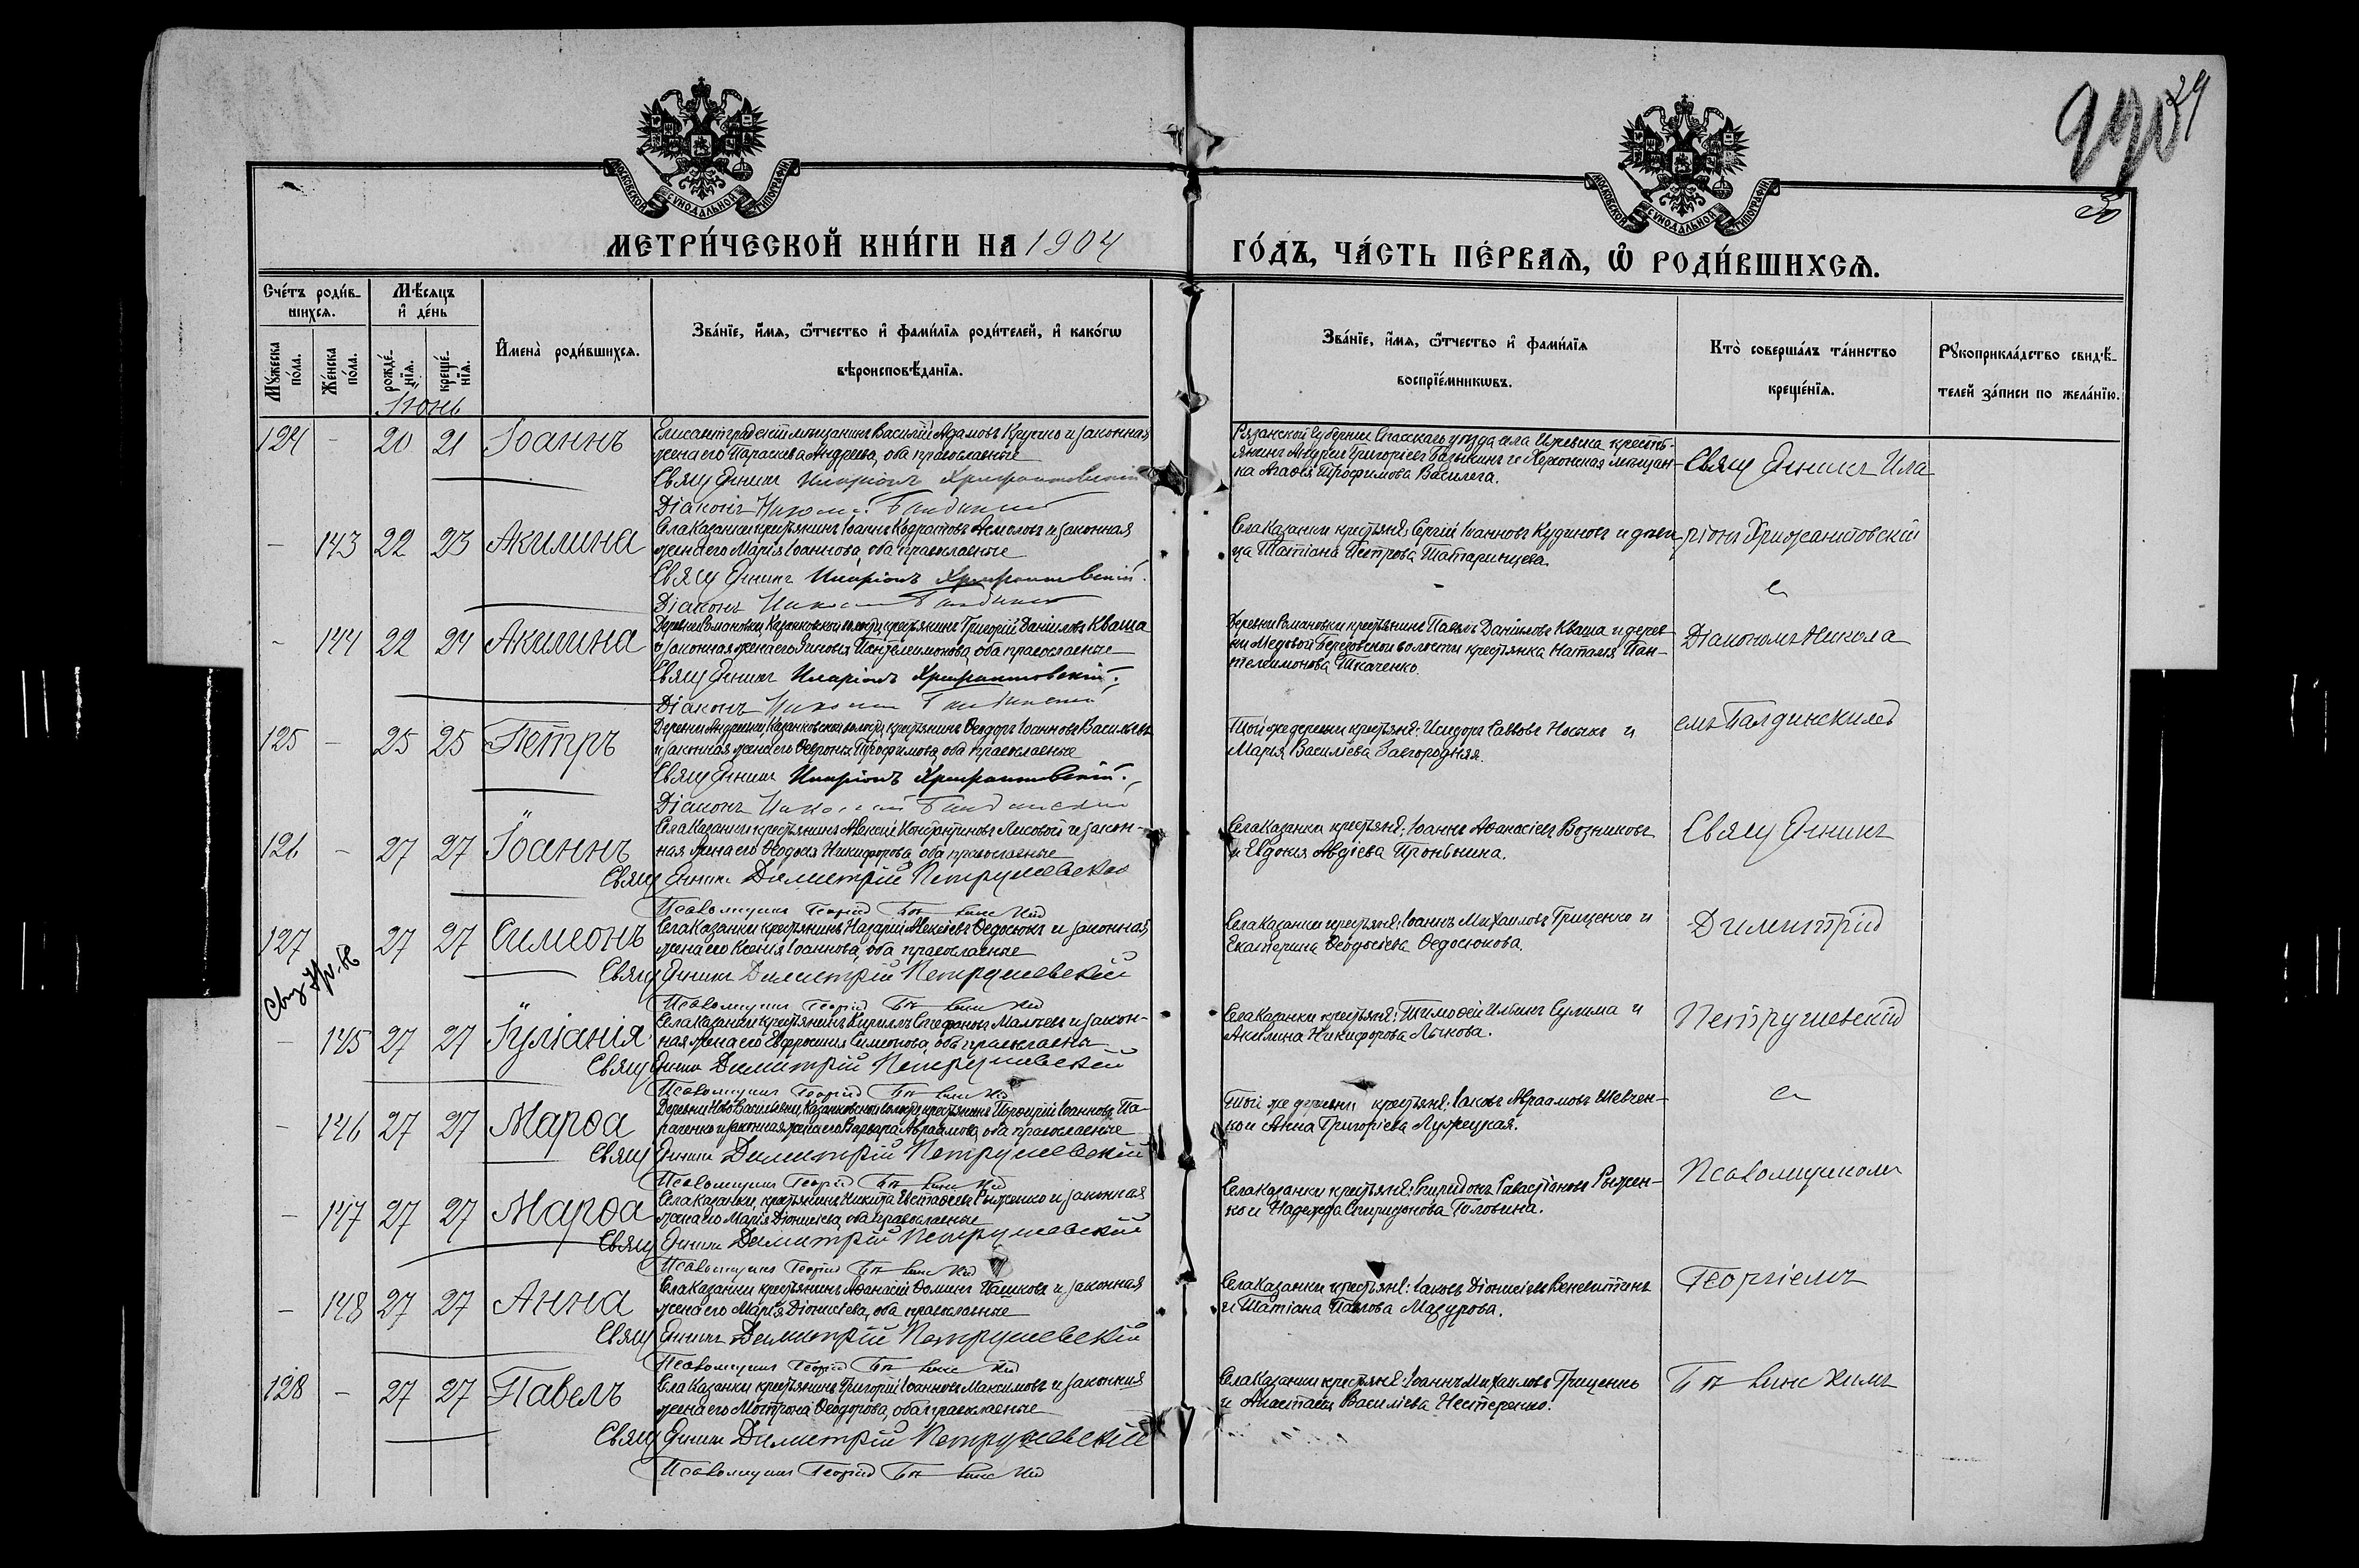 МОСКОВСКОЙ СѴНОДАЛЬНОЙ ТИПОГРАФІИ
МОСКОВСКОЙ СѴНОДАЛЬНОЙ ТИПОГРАФІИ
29
30
МЕТРИ́ЧЕСКОЙ КНИ́ГИ НА 1904
ГО́ДЪ, ЧА́СТЬ ПЕ́РВАѦ, Ѽ РОДИ́ВШИХСѦ.
Сче́тъ роди́в-
шихсѧ.
Мѣ́сѧцъ
и҆ де́нь
Мꙋ́жеска
по́ла.
Же́нска
по́ла.
рожде́-
нїѧ.
креще́-
нїѧ.
И҆мена̀ роди́вшихсѧ.
Зва́нїе, и҆́мѧ, ѻ҆́тчество и҆ фами́лїѧ роди́телей, и҆ како́гѡ
вѣроисповѣ́данїѧ.
Зва́нїе, и҆́мѧ, ѻ҆́тчество и҆ фами́лїѧ
воспрїе́мникѡвъ.
Кто̀ соверша́лъ та́инство
креще́нїѧ.
Рꙋкоприкла́дство свидѣ́-
телей за́писи по жела́нїю.
Іюнь
124 - 20 21 Іоаннъ
Елисаветградскій мещанинъ Василій Адамовъ Кручко и законная
жена его Параскева Андреева, оба православные
Священникъ Иларіонъ Хрисанфовскій
Діаконъ Николай
Рязанской губерніи Спасскаго уезда села Ижевска кресть-
янинъ Андрей Григорієвъ и Херсонская мещан-
ка Агафія Трофимова Василега.
Священникъ Ила
- 143 22 23 Акилина
Села Казанки крестьянинъ Іоаннъ Кодратовъ и законная
жена его Марія Іоаннова, оба православные
Священникъ Иларіонъ
Діаконъ
Села Казанки крестьяне: Сергій Іоанновъ Кудиновъ и деви-
ца Татіана Петрова Татаринцева.
ріонъ
с
- 144 22 24 Акилина
Деревни Романовки, Казанковской волости, крестьянинъ Григорій Даніиловъ Кваша
и законная жена его Зиновія Пантелеимонова, оба православные
Священникъ Иларіонъ
Діаконъ
Деревни Романовки крестьянинъ Павелъ Даніиловъ Кваша и дерев-
ни Медовой волости крестьянка Наталія Пан-
телеимонова Ткаченко.
Діакономъ Никола
125 - 25 25 Петръ
Деревни Андреевки, Казанковской волости, крестьянинъ Ѳеодоръ Іоанновъ
и законная жена его Ѳевронія Трофимова, оба православные
Священникъ Иларіонъ
Діаконъ Николай
Той же деревни крестьяне: Исидоръ Саввовъ Носыкъ и
Марія Василіева Загородняя.
емъ Балдинскимъ
126 - 27 27 Іоаннъ
Села Казанки крестьянинъ Алексій Константиновъ Лисовой и закон-
ная жена его Ѳеодосія Никифорова, оба православные
Священникъ Димитрій Петрушевскій
Псаломщикъ Георгій
Села Казанки крестьяне: Іоаннъ Аѳанасіевъ Возниковъ
и Евдокія Авдіева Пронькина.
Священникъ
127 27 27 Симеонъ
Села Казанки крестьянинъ Назарій Алексіевъ Ѳедосюкъ и законная
жена его Ксенія Іоаннова, оба православные
Священникъ Димитрій Петрушевскій
Псаломщикъ Георгій
Села Казанки крестьяне: Іоаннъ Михаиловъ Гриценко и
Екатерина Ѳеодосіева Ѳедосюкова.
Димитрій
- 145 27 27 Іуліанія
Села Казанки крестьянинъ Кириллъ Стефановъ Малѣевъ и закон-
ная жена его Евфросинія Симеонова, оба православны
Священникъ Димитрій Петрушевскій
Псаломщикъ Георгій
Села Казанки крестьяне: Тимоѳей Ильинъ Сулима и
Акилина Никифорова Лычкова.
Петрушевскій
- 146 27 27 Марѳа
Деревни Ново-Васильевки, Казанковской волости, крестьянинъ Терентій Іоанновъ Та-
раненко и законная жена его Варвара Авраамова, оба православные
Священникъ Димитрій Петрушевскій
Псаломщикъ Георгій
Той же деревни крестьяне: Іаковъ Авраамовъ Шевчен-
ко и Анна Григоріева Лужецкая.
с
- 147 27 27 Марѳа
Села Казанки, крестьянинъ Никита Евстаѳіевъ Рыженко и законная
жена его Марія Діонисіева, оба православные
Священникъ Димитрій Петрушевскій
Псаломщикъ Георгій
Села Казанки крестьяне: Спиридонъ Савастіановъ Рыжен-
ко и Надежда Спиридонова Головина.
Псаломщикомъ
- 148 27 27 Анна
Села Казанки крестьянинъ Аѳанасій Ѳоминъ Пашковъ и законная
жена его Марія Діонисіева, оба православные
Священникъ Димитрій Петрушевскій
Псаломщикъ Георгій
Села Казанки крестьяне: Іаковъ Діонисіевъ
и Татіана Павлова Мазурова.
Георгіемъ
128 - 27 27 Павелъ
Села Казанки крестьянинъ Григорій Іоанновъ Максимовъ и законная
жена его Матрона Ѳеодорова, оба православные
Священникъ Димитрій Петрушевскій
Псаломщикъ Георгій
Села Казанки крестьяне: Іоаннъ Михаиловъ Гриценко
и Анастасія Василіева Нестеренко.